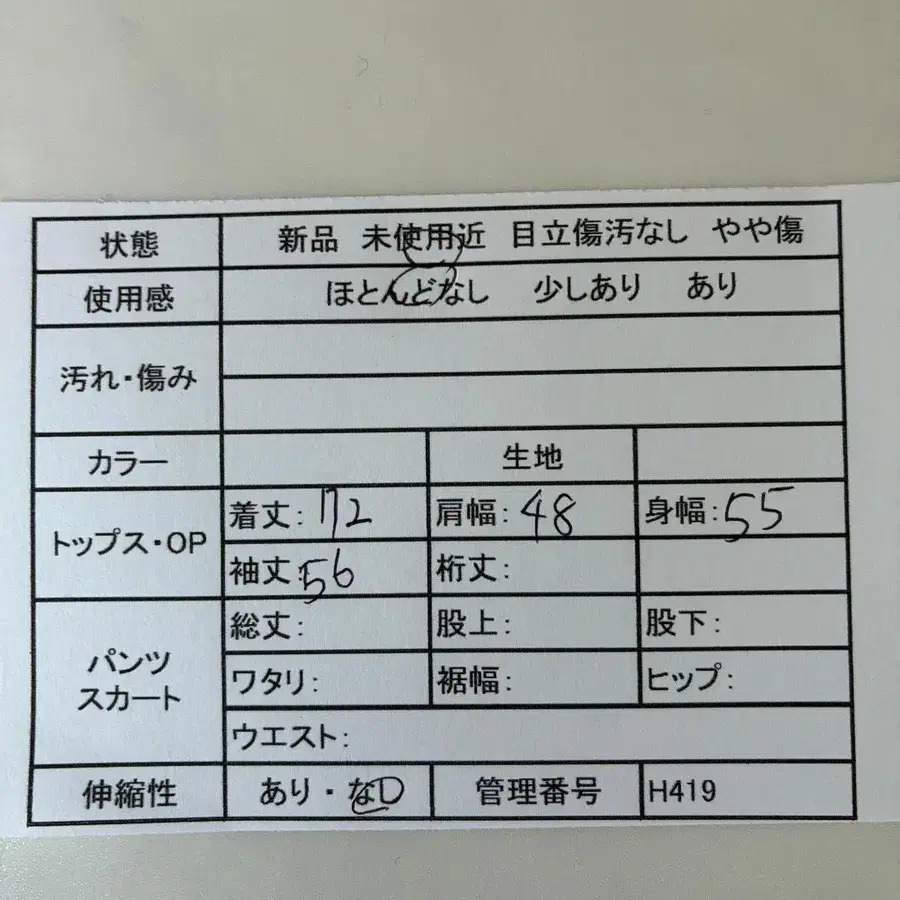 状態 新品 未使用近 目立傷汚なし やや傷
使用感 ほとんどなし 少しあり あり
汚れ・傷み
カラー 生地
トップス・OP 着丈: 72 肩幅: 48 身幅: 55
袖丈: 56 裄丈:
パンツ スカート 総丈: 股上: 股下:
ワタリ: 裾幅: ヒップ:
ウエスト:
伸縮性 あり・なし 管理番号 H419